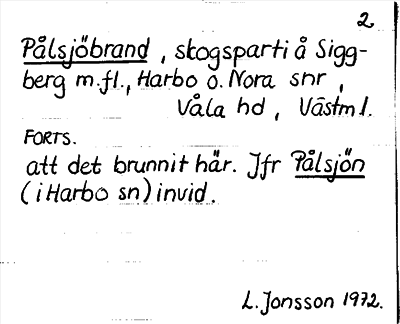 2.
Pålsjöbrand, skogsparti å Sigg-
berg m.fl., Harbo o. Nora snr,
Våla hd, Västml.
FORTS.
att det brunnit här. Jfr Pålsjön
(i Harbo sn) invid.
L. Jonsson 1972.